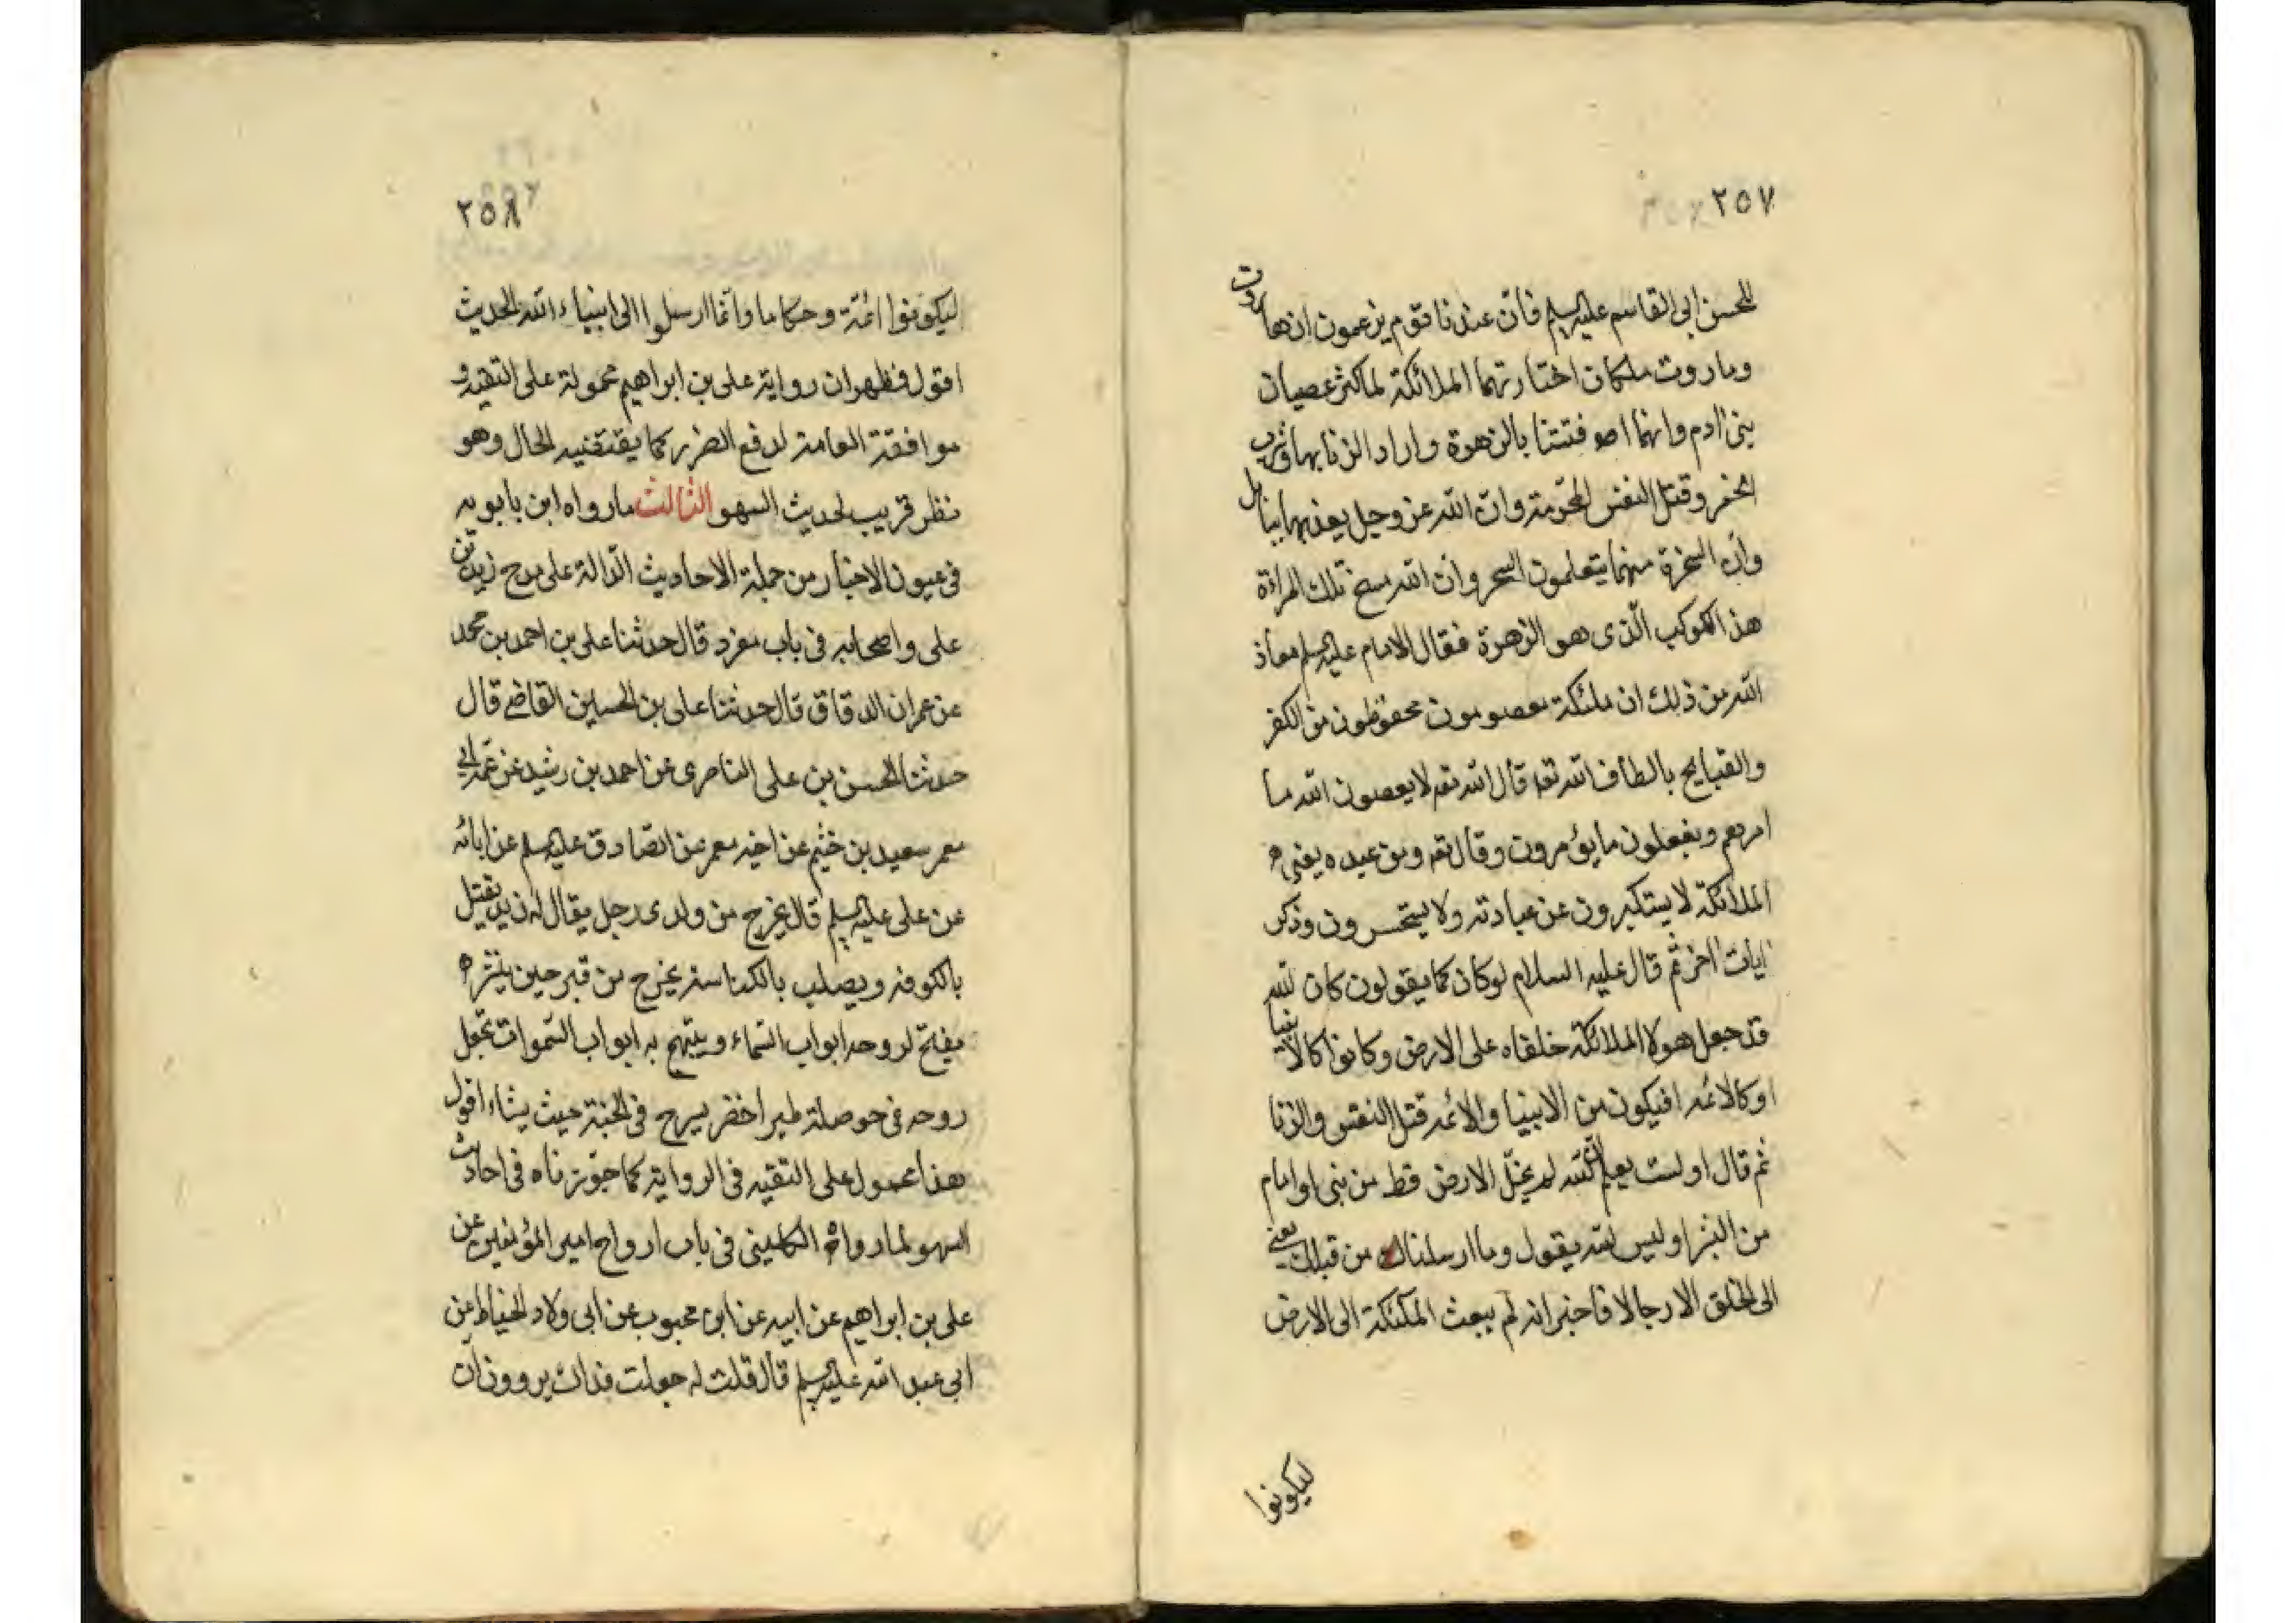 ٢٥٧
للحسن ابى القاسم عليه السلم فان عندنا قوم يزعمون ان هاروت
وماروت ملكان اختارتهما الملائكة لما كثر عصيان
بنى ادم وانهما افتتنا بالزهرة واراد الزنا بها وشرب
الخمر وقتل النفس المحرمة وان الله عز وجل يعذبهما ببابل
وان السحرة منهما يتعلمون السحر وان الله مسخ تلك المراءة
هذا الكوكب الذى هو الزهرة فقال الامام عليه السلم معاذ
الله من ذلك ان ملئكة معصومون محفوظون من الكفر
والقبايح بالطاف الله تعه قال الله تعه لا يعصون الله ما
امرهم ويفعلون ما يؤمرون وقال تعه ومن عنده يعنى
الملائكة لا يستكبرون عن عبادته ولا يستحسرون وذكر
ايات اخر ثم قال عليه السلام لو كان كما يقولون كان لله
قد جعل هولا الملائكة خلفاه على الارض وكانوا كالانبيا
او كالائمه افيكون من الانبيا والائمه قتل النفس والزنا
ثم قال اولست يعلم ان الله لم يخل الارض قط من نبى او امام
من البشر اوليس لله يقول وما ارسلنا من قبلك يعنى
الى الخلق الا رجالا فاخبر انه لم يبعث الملئكة الى الارض
ليكونوا
٢٥٨
ليكونوا ائمة وحكاما وانما ارسلوا الى انبياء الله الحديث
اقول فظهر ان رواية على بن ابراهيم محمولة على التقيه و
موافقة العامة لدفع الضرر كما يقتضيه الحال وهو
نظر قريب لحديث السهو الثالث ما رواه ابن بابويه
فى عيون الاخبار من جملة الاحاديث الدالة على مدح زيد بن
على واصحابه فى باب مفرد قال حدثنا على بن احمد بن محمد
عن عمران الدقاق قال حدثنا على بن الحسين القاضى قال
حدثنا الحسن بن على الناصرى عن احمد بن رشيد عن عمه ابى
معمر سعيد بن خثيم عن اخيه معمر عن الصادق عليه السلم عن ابائه
عن على عليه السلم قال يخرج من ولدى رجل يقال له زيد يقتل
بالكوفه ويصلب بالكناسه يخرج من قبر حين ينشره
يفتح لروحه ابواب السماء ويبتهج به ابواب السموات تجعل
روحه فى حوصلة طير اخضر يسرح فى الجنة حيث يشاء اقول
هذا محمول على التقيه فى الرواية كما جوزناه فى احاديث
السهو لما رواه الكلينى فى باب ارواح امير المؤمنين عن
على بن ابراهيم عن ابيه عن ابن محبوب عن ابى ولاد الحناط عن
ابى عبد الله عليه السلم قال قلت له جعلت فداك يروون ان